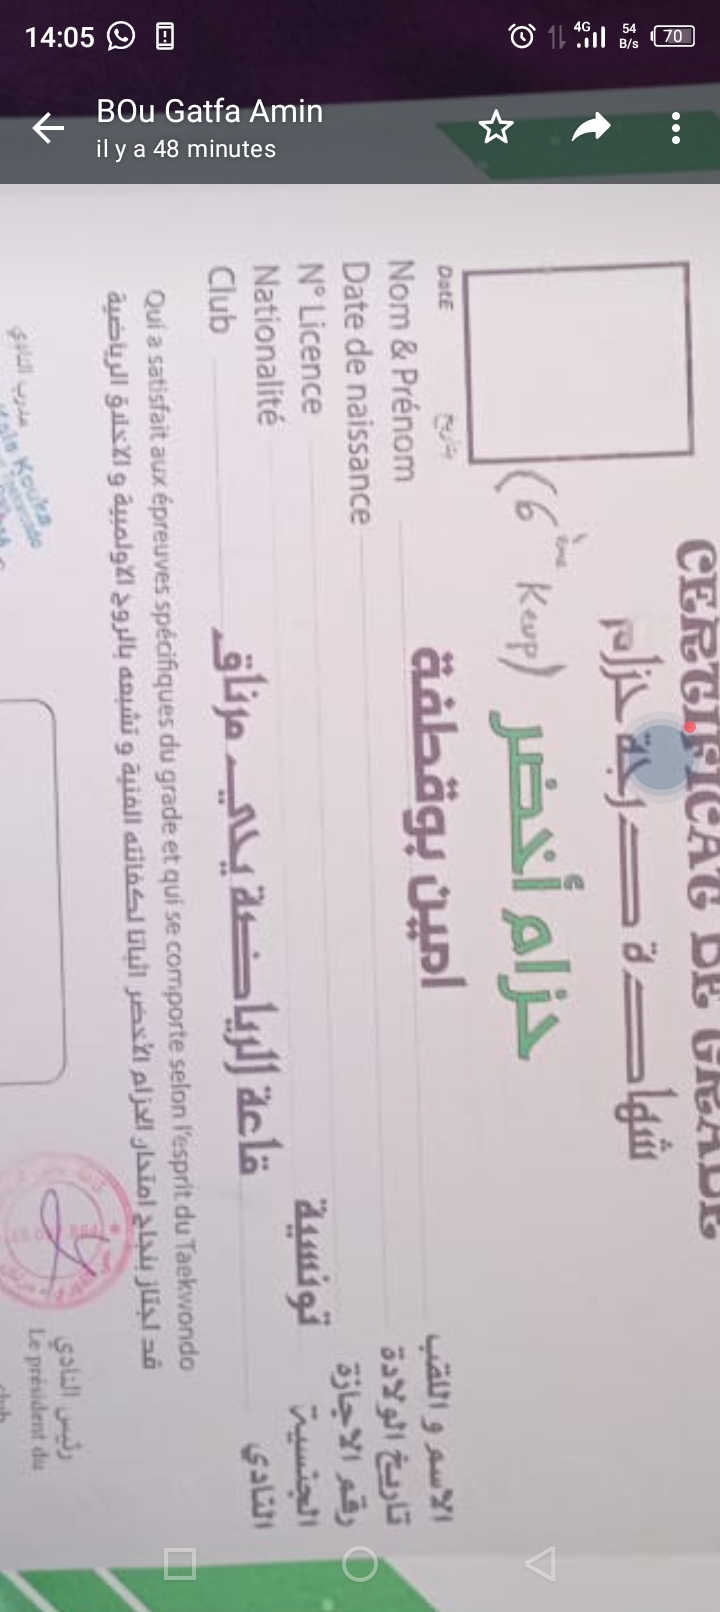 14:05
4G
54 B/s
70
BOu Gatfa Amin
il y a 48 minutes
CERTIFICAT DE GRADE
شهادة درجة حزام
حزام أخضر (6ème Keup)
DatE تاريخ
Nom & Prénom امين بوقطفة الاسم و اللقب
Date de naissance تاريخ الولادة
N° Licence رقم الاجازة
Nationalité تونسية الجنسية
Club قاعة الرياضة يحي مرناق النادي
Qui a satisfait aux épreuves spécifiques du grade et qui se comporte selon l'esprit du Taekwondo
قد اجتاز بنجاح امتحان الحزام الأخضر اثباتا لكفائته الفنية و تشبعه بالروح الاولمبية و الاخلاق الرياضية
مدرب النادي رئيس النادي
Le président du